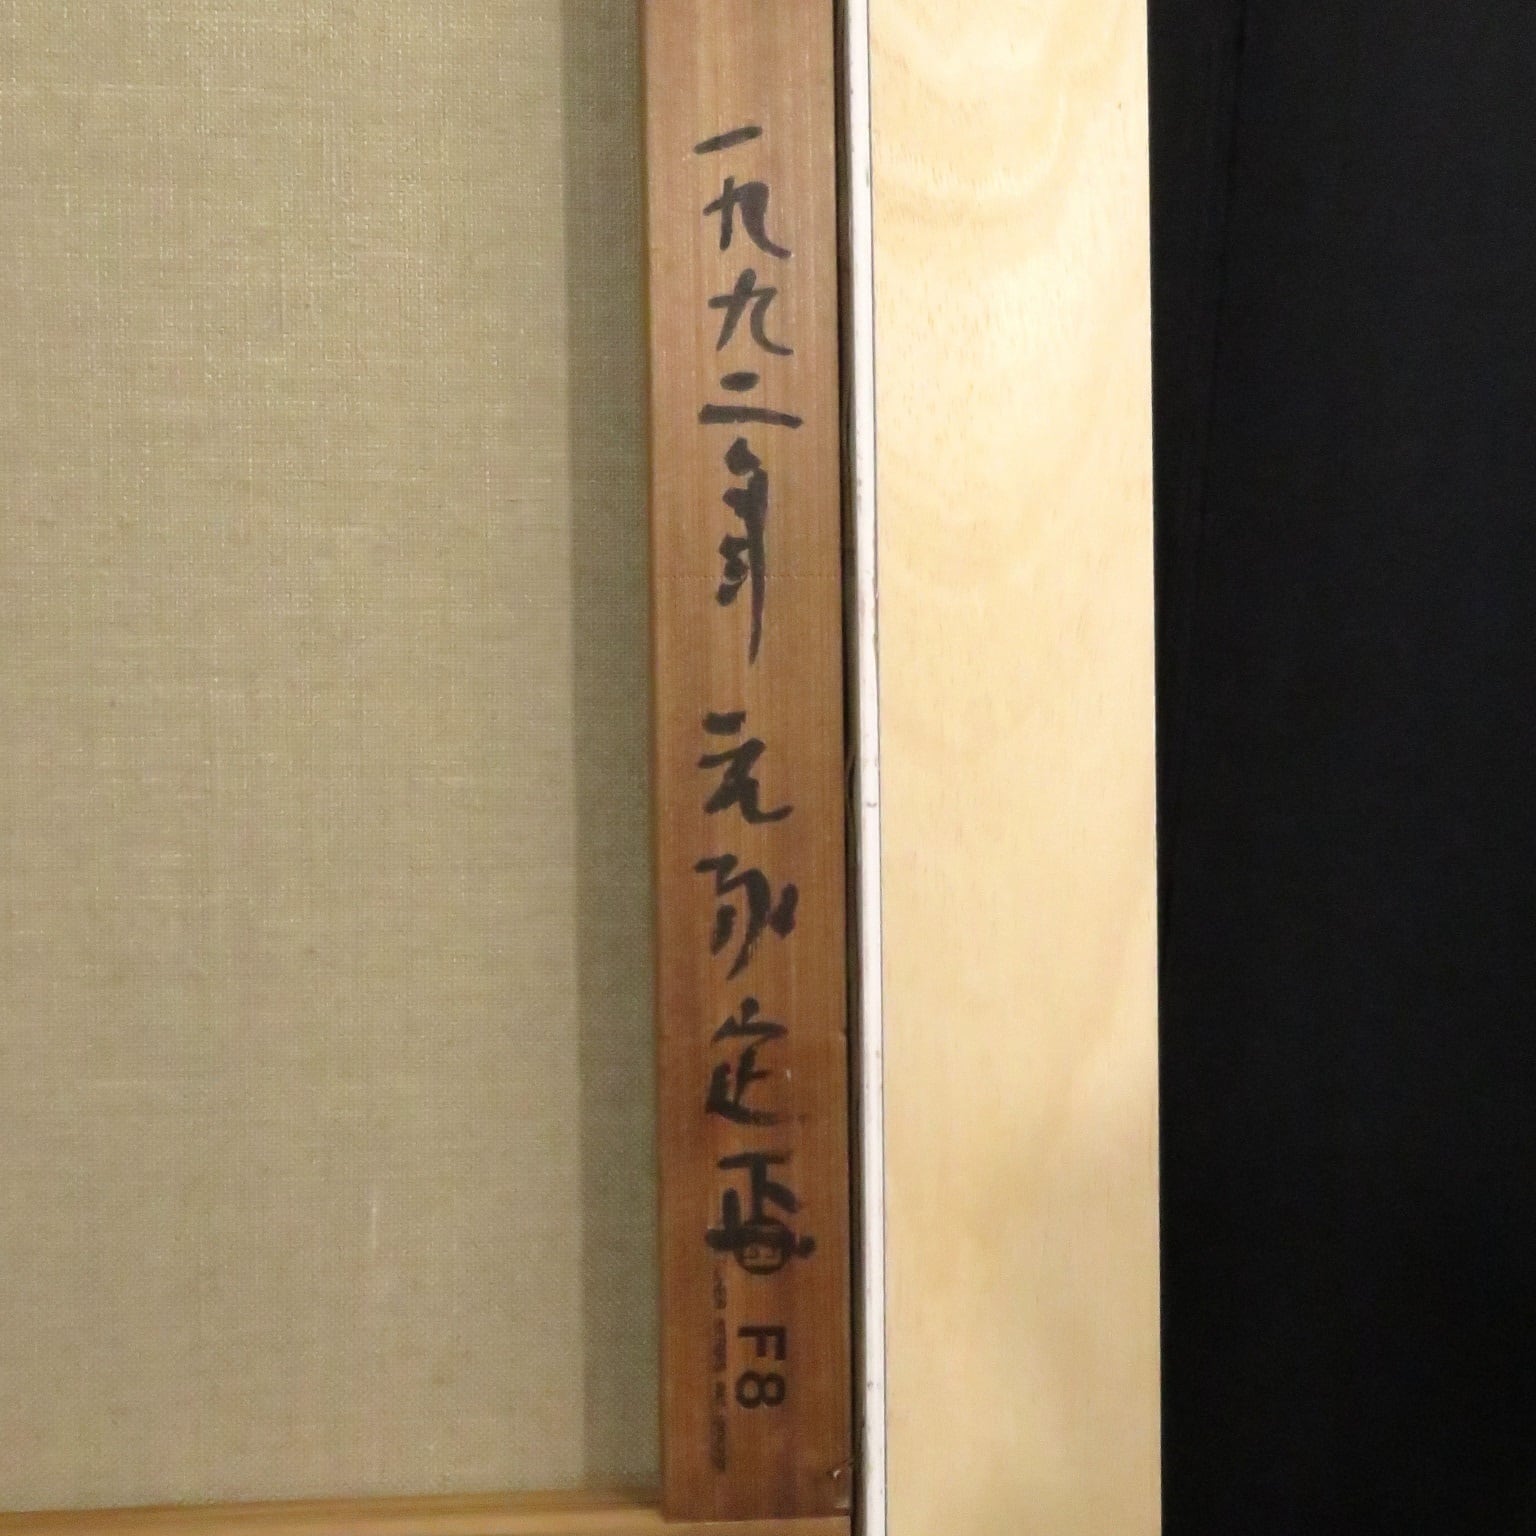 一九九二年 元永定正
F8